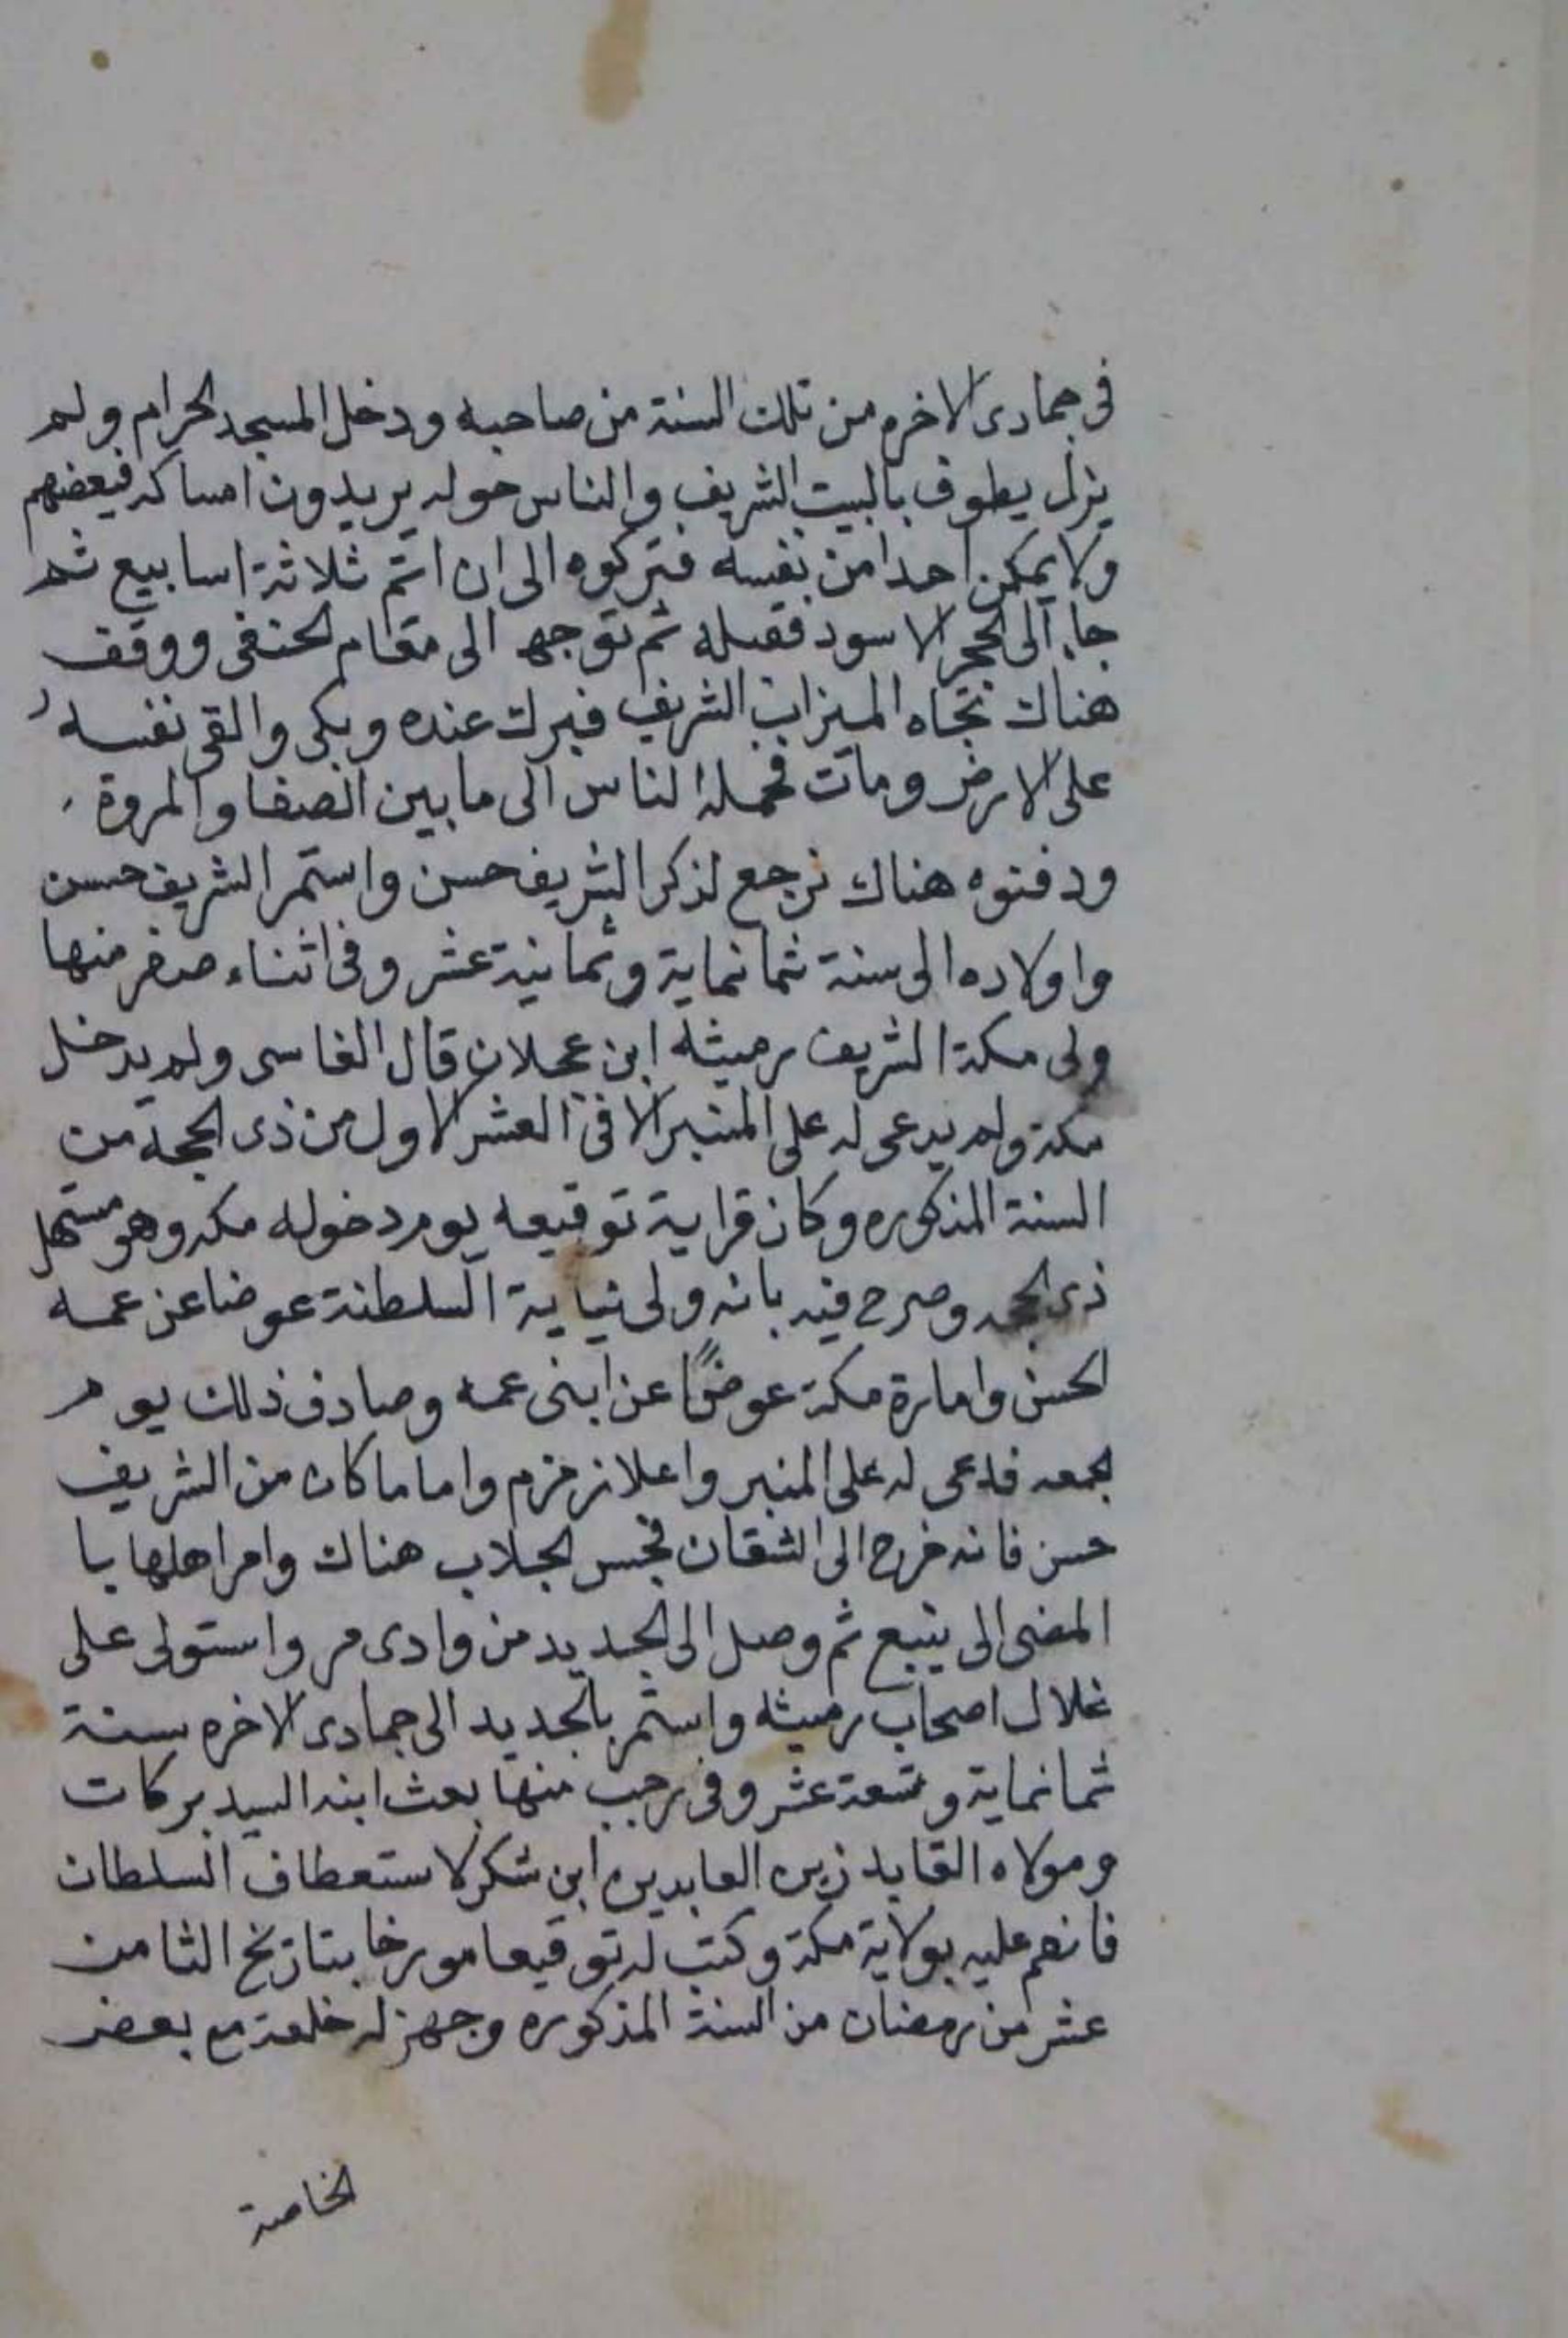 في جمادى الاخره من تلك السنة من صاحبه ودخل المسجد الحرام ولم
يزل يطوف بالبيت الشريف والناس حوله يريدون امساكه فيعضهم
ولا يمكن احدا من نفسه فتركوه الى ان اتم ثلاثة اسابيع ثم
جاء الى الحجر الاسود فقبله ثم توجه الى مقام الحنفى ووقف
هناك تجاه الميزاب الشريف فبرك عنده وبكى والقى نفسه
على الارض ومات فحمله الناس الى ما بين الصفا والمروة
ودفنوه هناك نرجع لذكر الشريف حسن واستمر الشريف حسن
واولاده الى سنة ثمانماية وثمانية عشر وفى اثناء صفر منها
ولى مكة الشريف رميثه ابن عجلان قال الفاسى ولم يدخل
مكة ولم يدعى له على المنبر الا فى العشر الاول من ذى الحجة من
السنة المذكوره وكان قراية توقيعه يوم دخوله مكه وهو مستهل
ذى الحجه وصرح فيه بانه ولى نيابة السلطنة عوضا عن عمه
الحسن وامارة مكة عوضًا عن ابنى عمه وصادف ذلك يوم
الجمعه فدعى له على المنبر واعلا زمزم واما ما كان من الشريف
حسن فانه خرج الى الشقان فحبس الجلاب هناك وامر اهلها با
المضى الى ينبع ثم وصل الى الجديد من وادى مر واستولى على
غلال اصحاب رميثه واستمر بالجديد الى جمادى الاخره سنة
ثمانماية وتسعة عشر وفى رجب منها بعث ابنه السيد بركات
ومولاه القايد زين العابدين ابن شكر لاستعطاف السلطان
فانعم عليه بولاية مكة وكتب له توقيعا مورخا بتاريخ الثامن
عشر من رمضان من السنة المذكوره وجهز له خلعة مع بعض
الخاصة